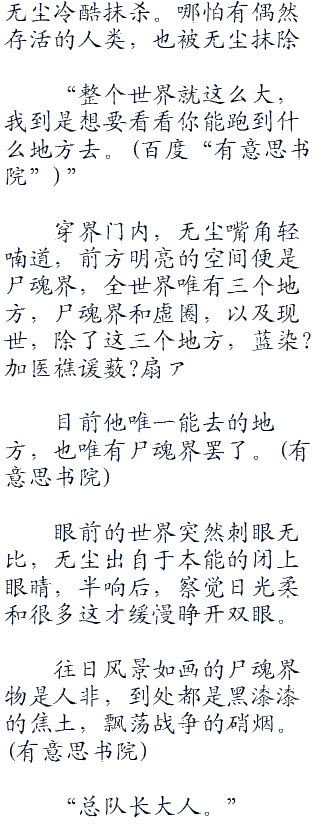 无尘冷酷抹杀。哪怕有偶然
存活的人类，也被无尘抹除
“整个世界就这么大，
我到是想要看看你能跑到什
么地方去。(百度“有意思书
院”)”
穿界门内，无尘嘴角轻
喃道，前方明亮的空间便是
尸魂界，全世界唯有三个地
方，尸魂界和虚圈，以及现
世，除了这三个地方，蓝染?
加医襍谖薮?扇ァ
目前他唯一能去的地
方，也唯有尸魂界罢了。(有
意思书院)
眼前的世界突然刺眼无
比，无尘出自于本能的闭上
眼睛，半响后，察觉日光柔
和很多这才缓慢睁开双眼。
往日风景如画的尸魂界
物是人非，到处都是黑漆漆
的焦土，飘荡战争的硝烟。
(有意思书院)
“总队长大人。”